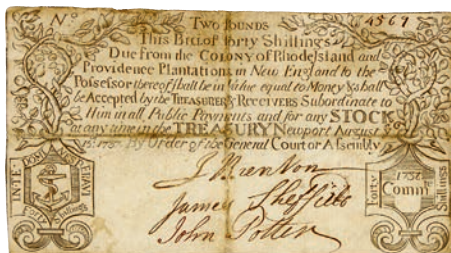 No TWO POUNDS 4567
This Bill of forty Shillings
Due from the COLONY of RhodeIsland and
Providence Plantations in New England to the
Possessor thereof shall be in Value equal to Money & shall
be Accepted by the TREASURER & RECEIVERS Subordinate to
Him in all Public Payments and for any STOCK
at any time in the TREASURY Newport August
By Order of the General Court or Assembly
J Brenton
James Sheffield
John Potter
Forty Shillings
1738
Forty Shillings